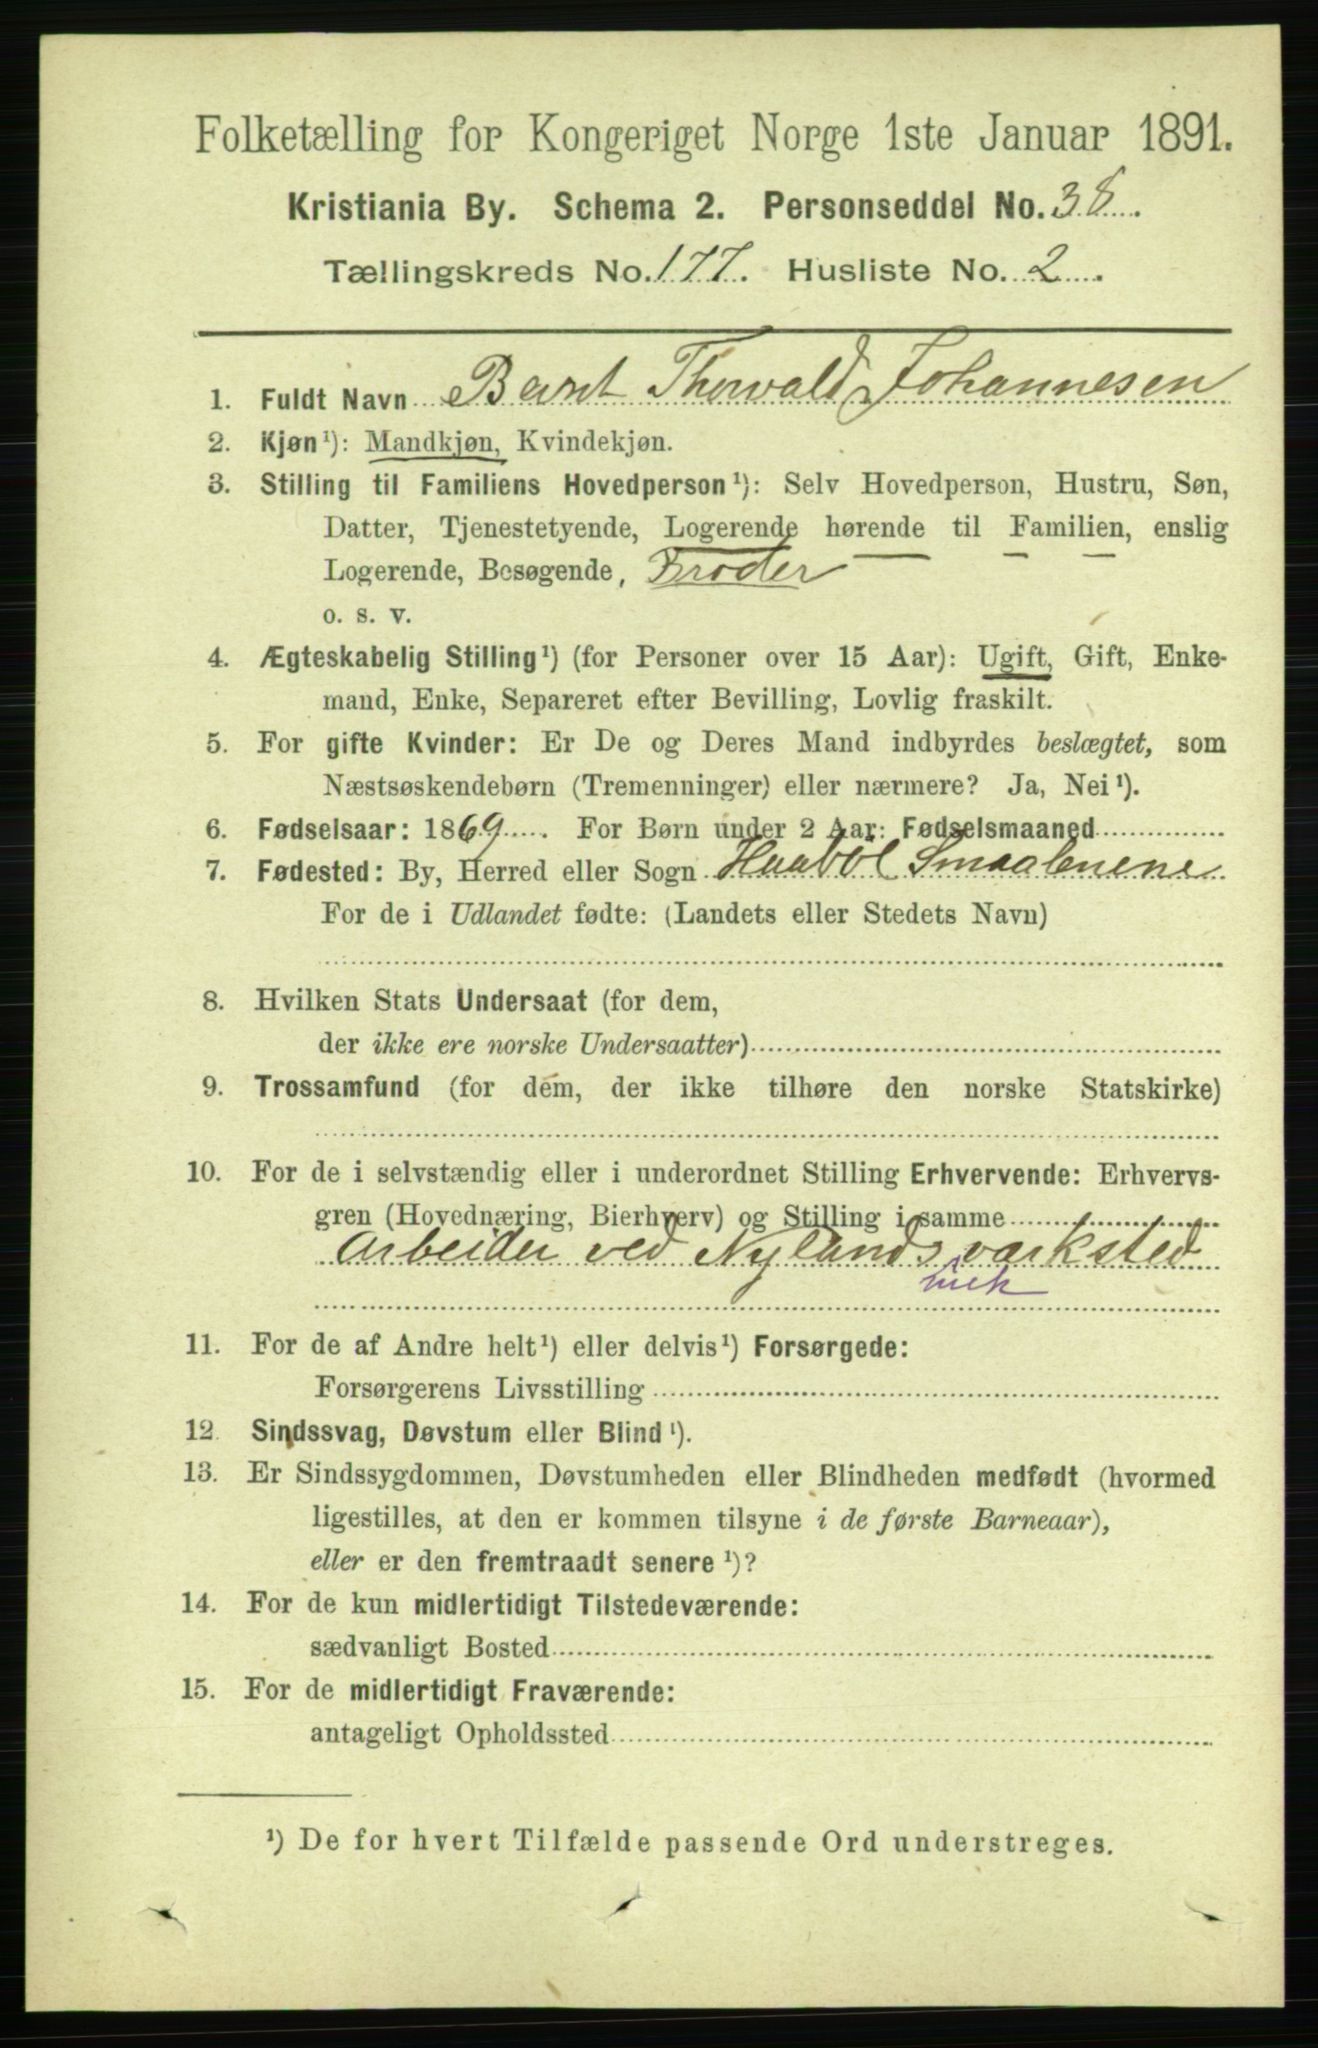 Folketælling for Kongeriget Norge 1ste Januar 1891.
Kristiania By. Schema 2. Personseddel No. 38
Tællingskreds No. 177. Husliste No. 2
1. Fuldt Navn Bernt Thorvald Johannesen
2. Kjøn¹): Mandkjøn, Kvindekjøn.
3. Stilling til Familiens Hovedperson¹): Selv Hovedperson, Hustru, Søn,
Datter, Tjenestetyende, Logerende hørende til Familien, enslig
Logerende, Besøgende, Broder
o. s. v.
4. Ægteskabelig Stilling¹) (for Personer over 15 Aar): Ugift, Gift, Enke-
mand, Enke, Separeret efter Bevilling, Lovlig fraskilt.
5. For gifte Kvinder: Er De og Deres Mand indbyrdes beslægtet, som
Næstsøskendebørn (Tremenninger) eller nærmere? Ja, Nei¹).
6. Fødselsaar: 1869. For Børn under 2 Aar: Fødselsmaaned
7. Fødested: By, Herred eller Sogn Haaböl Smaalenene
For de i Udlandet fødte: (Landets eller Stedets Navn)
8. Hvilken Stats Undersaat (for dem,
der ikke ere norske Undersaatter)
9. Trossamfund (for dem, der ikke tilhøre den norske Statskirke)
10. For de i selvstændig eller i underordnet Stilling Erhvervende: Erhvervs-
gren (Hovednæring, Bierhverv) og Stilling i samme
Arbeider ved Nylands værksted
mek
11. For de af Andre helt¹) eller delvis¹) Forsørgede:
Forsørgerens Livsstilling
12. Sindssvag, Døvstum eller Blind¹).
13. Er Sindssygdommen, Døvstumheden eller Blindheden medfødt (hvormed
ligestilles, at den er kommen tilsyne i de første Barneaar),
eller er den fremtraadt senere¹)?
14. For de kun midlertidigt Tilstedeværende:
sædvanligt Bosted
15. For de midlertidigt Fraværende:
antageligt Opholdssted
¹) De for hvert Tilfælde passende Ord understreges.